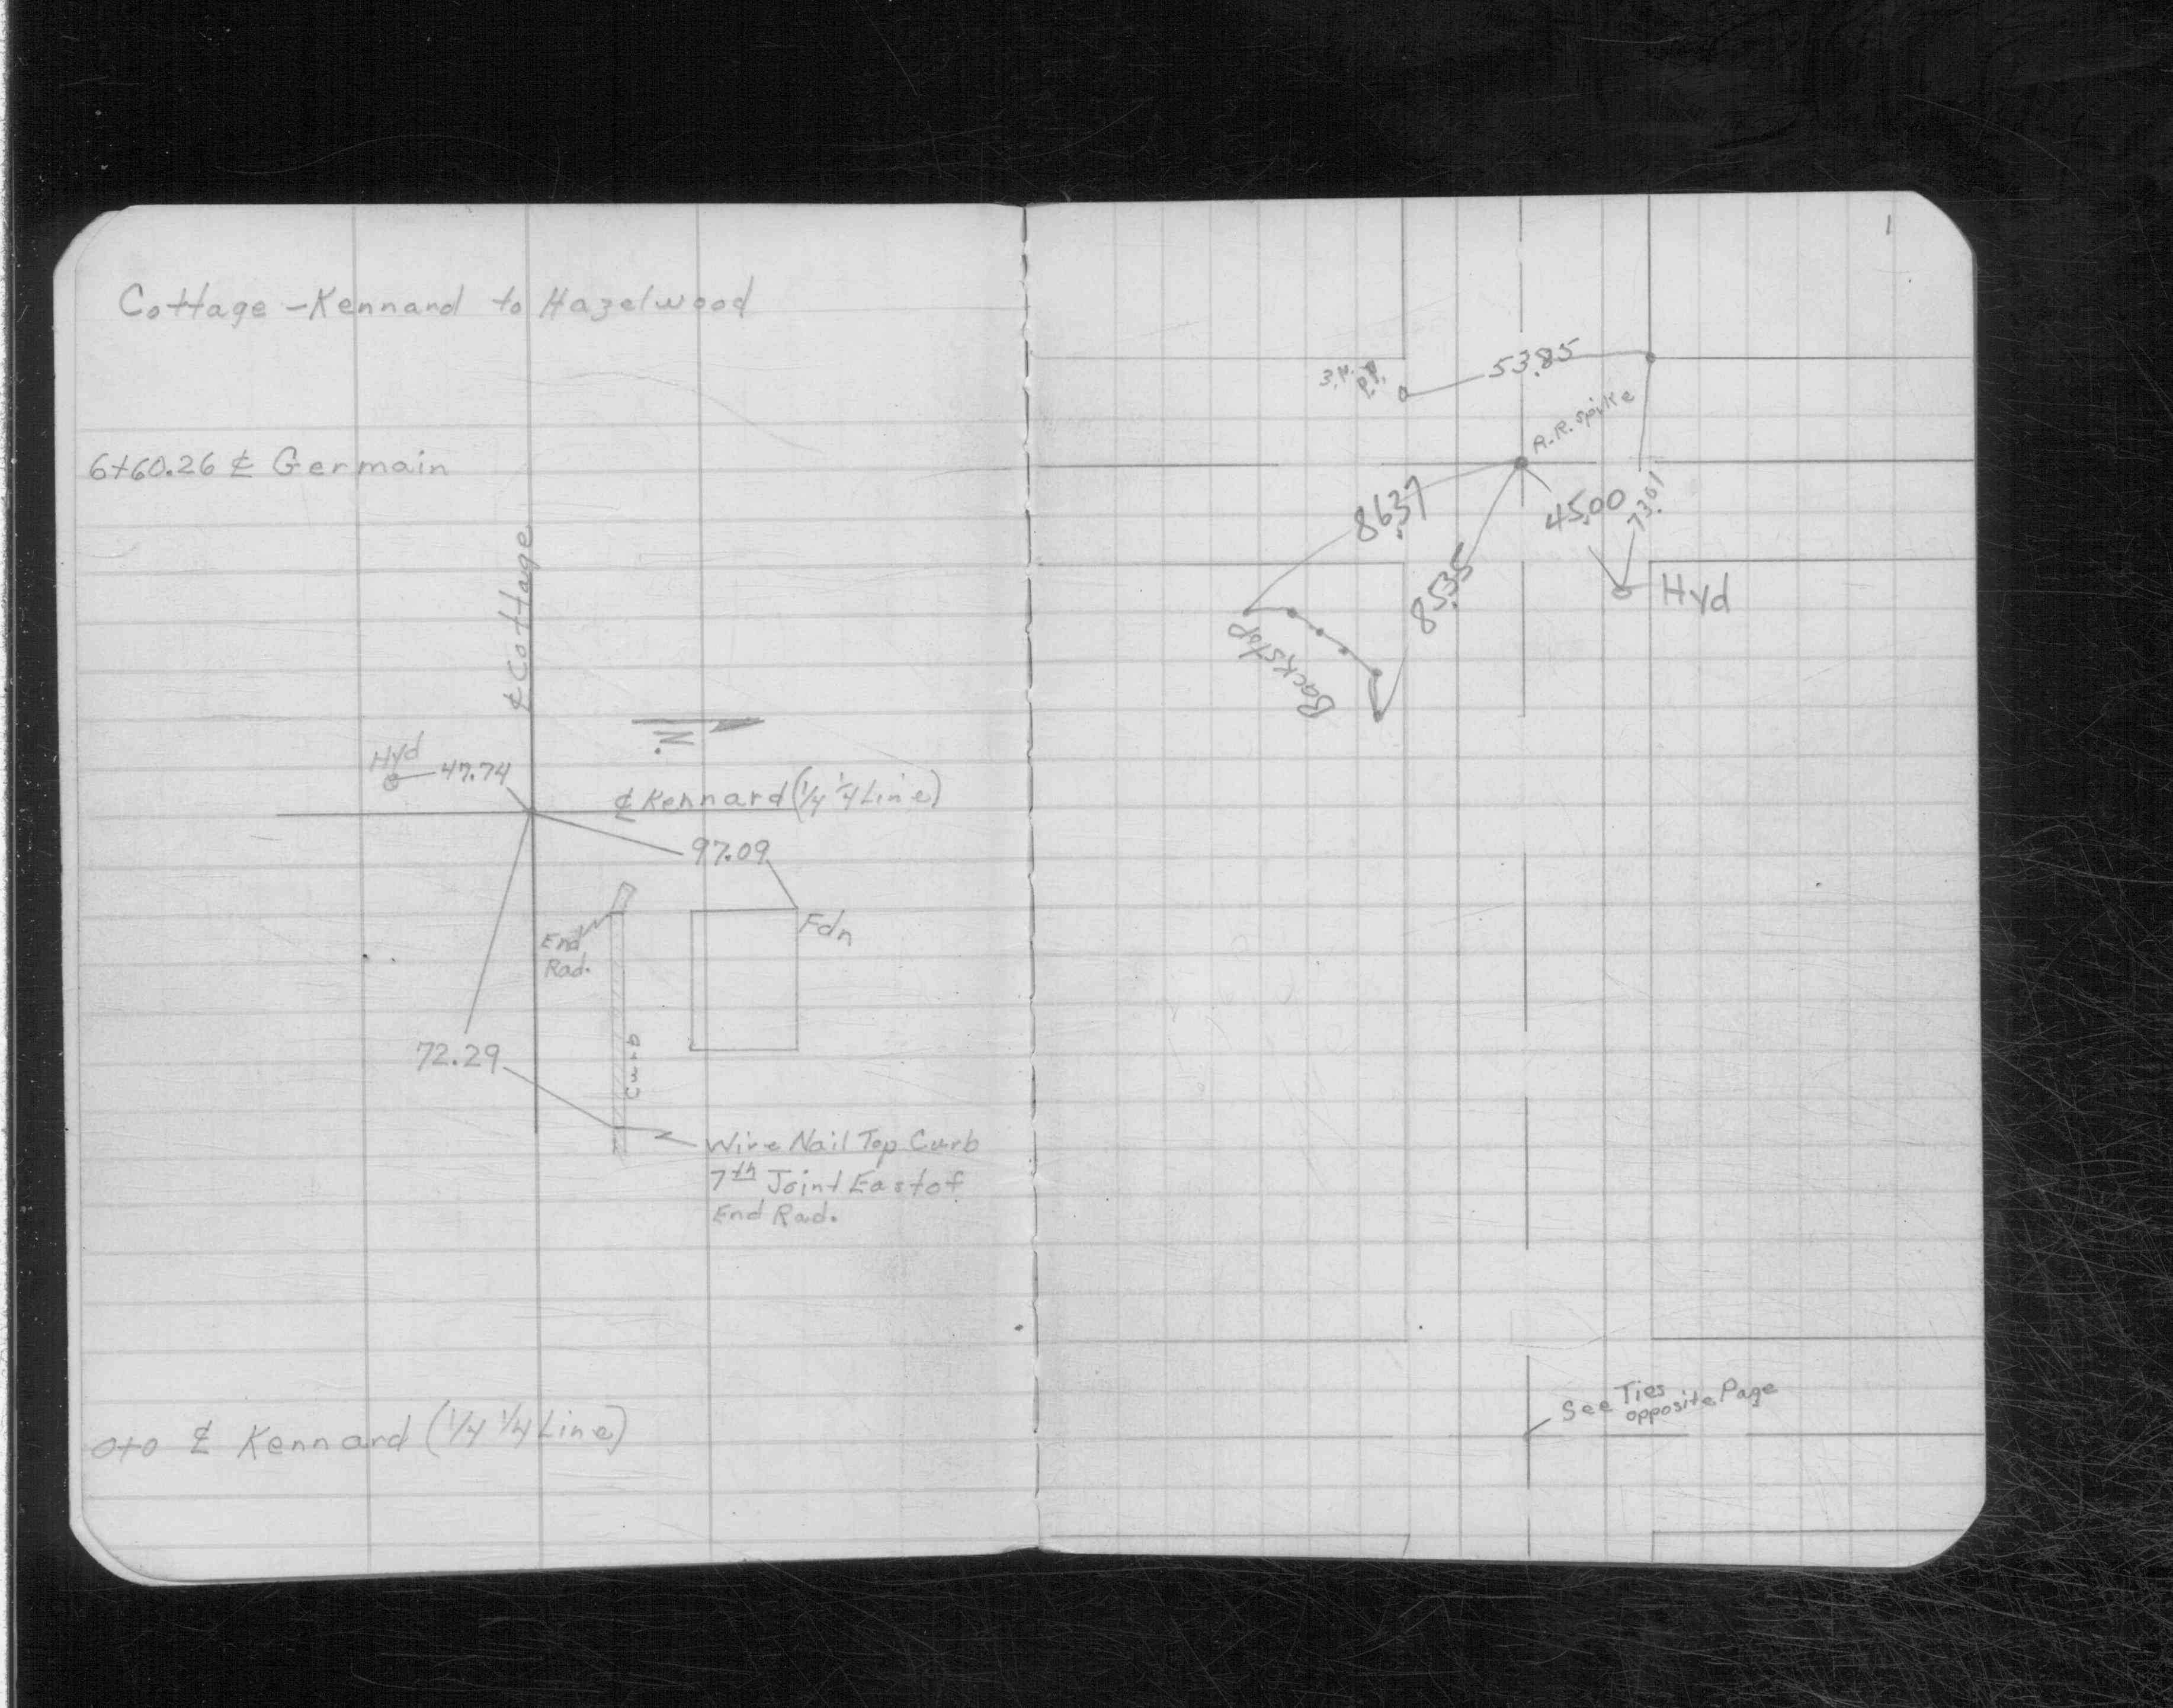 Cottage - Kennard to Hazelwood
6+60.26 ℄ Germain
℄ Cottage
N.
Hyd
47.74
℄ Kennard (1/4 1/4 Line)
97.09
Fdn
End
Rad.
Curb
72.29
Wire Nail Top Curb
7th Joint East of
End Rad.
0+0 ℄ Kennard (1/4 1/4 Line)
1
53.85
P.P.
R.R. spike
86.37
45.00
73.01
85.35
Hyd
Backstop
See Ties
opposite Page